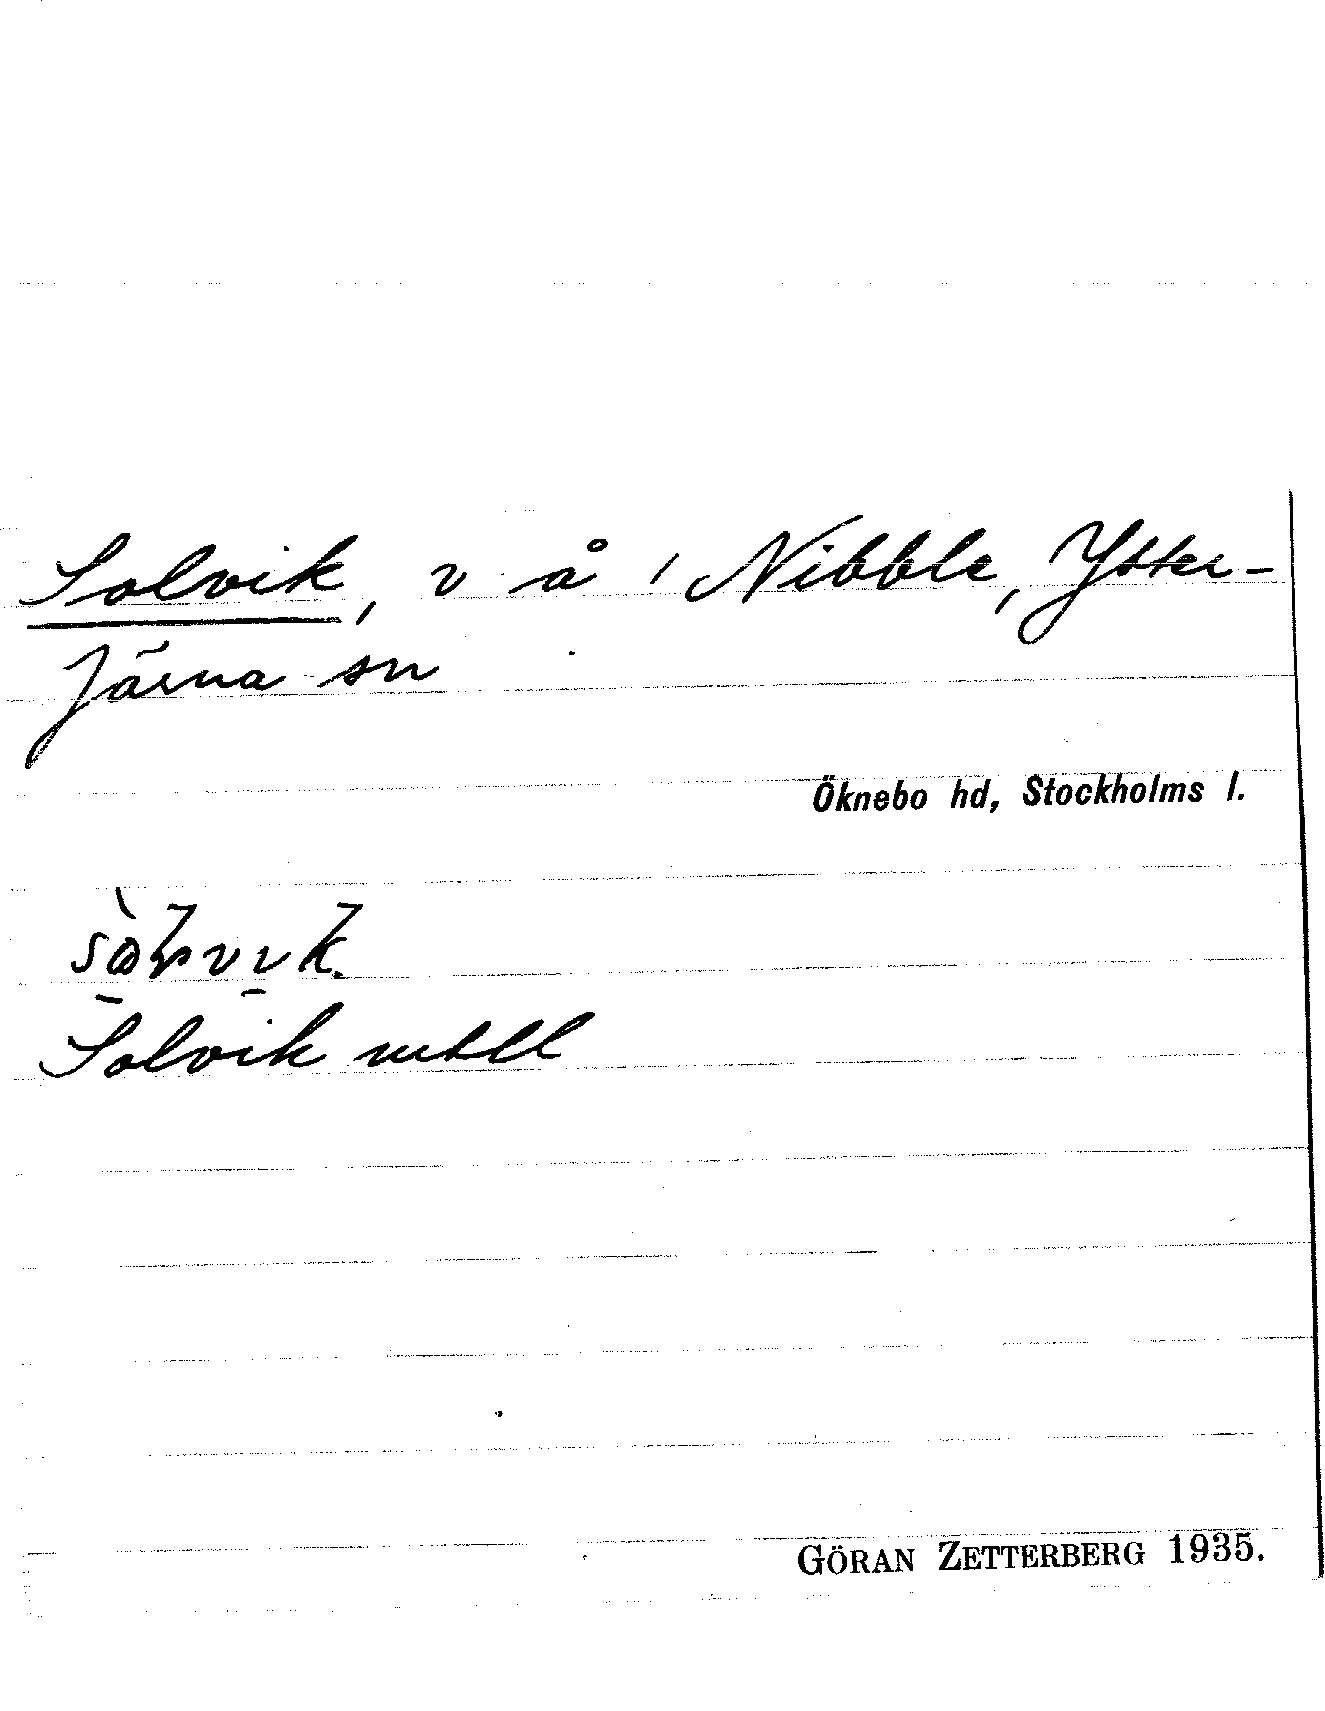 Solvik, v å i Nibble, Ytter-
Järna sn
Öknebo hd, Stockholms l.
Solvik mtll
GÖRAN ZETTERBERG 1935.